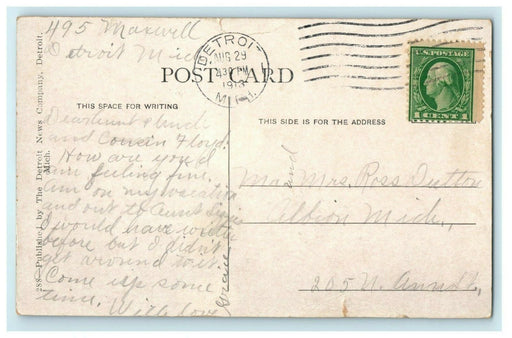 495 Maxwell
Detroit Mich
DETROIT
AUG 29
430 PM
MICH.
U.S. POSTAGE
1 CENT 1
POST CARD
THIS SPACE FOR WRITING
THIS SIDE IS FOR THE ADDRESS
288—Published by The Detroit News Company, Detroit, Mich.
Dear Aunt & Uncle
and Cousin Floyd.
How are you I
am feeling fine.
Am on my vacation
and out to Aunt
I would have written
before but I didn't
get around to it.
Come up some
time. With love
Mr. and Mrs. Ross Dutton
Albion Mich.,
205 N. Ann St.